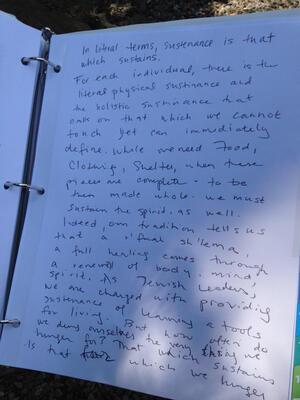 In literal terms, sustenance is that
which sustains.
For each individual, there is the
literal physical sustinance and
the holistic sustinance that
calls on that which we cannot
touch yet can immediately
define. While we need Food,
Clothing, Shelter, when these
pieces are complete - to be
then made whole. we must
sustain the spirit. as well.
Indeed, our tradition tells us
that a r'fuah sh'lema,
a full healing comes through
a renewal of body, mind,
spirit. As Jewish leaders,
we are charged with providing
sustenance of learning & tools
for living. But how often do
we deny ourselves the very thing we
hunger for? That which sustains
Is that which we hunger